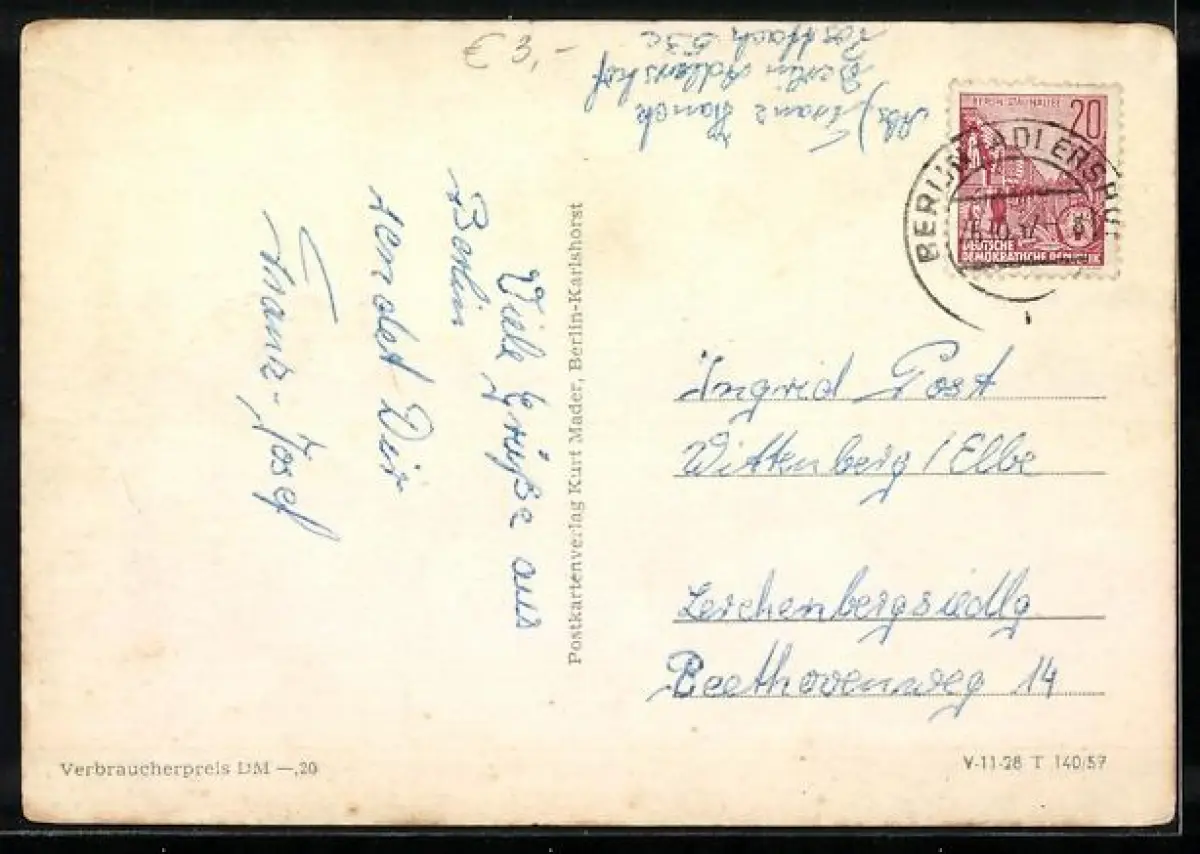 € 3,-
Abs.) Franz Hanck
Berlin Adlershof
Postfach 53c
Viele Grüße aus
Berlin
sendet Dir
Franz-Josef
Postkartenverlag Kurt Mader, Berlin-Karlshorst
BERLIN STALINALLEE
20
DEUTSCHE
DEMOKRATISCHE REPUBLIK
BERLIN-ADLERSHOF
Ingrid Post
Wittenberg / Elbe
Lerchenbergsiedlg
Beethovenweg 14
Verbraucherpreis DM —,20
V-11-28 T 140/57